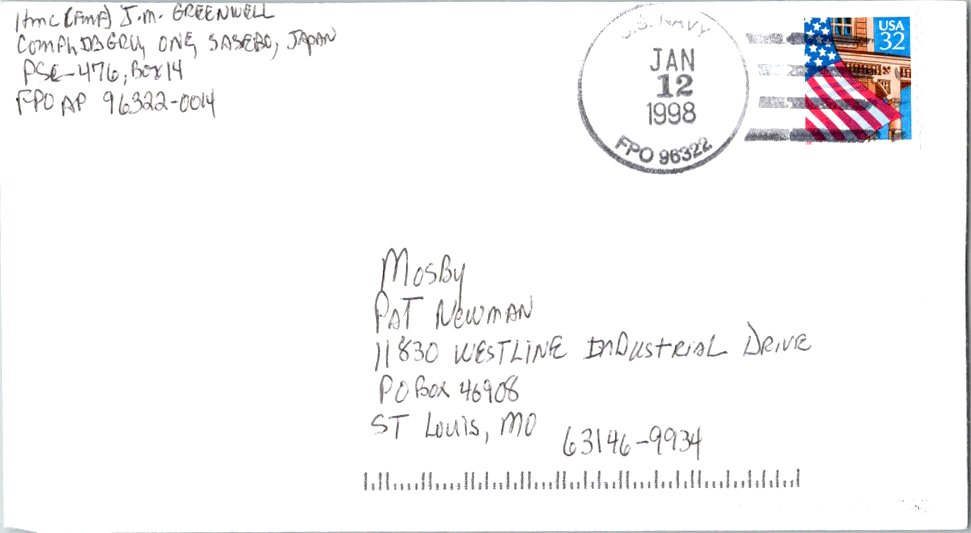 HMC (FMF) J.M. GREENWELL
COMPHIBGRU ONE, SASEBO, JAPAN
PSC-476, Box 14
FPO AP 96322-0014
U.S. NAVY
JAN
12
1998
FPO 96322
USA
32
MOSBY
PAT NEWMAN
11830 WESTLINE INDUSTRIAL DRIVE
PO BOX 46908
ST LOUIS, MO
63146-9934